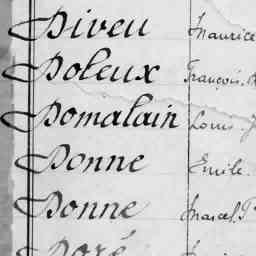 Diveu Maurice
Doleux François.
Domalain Louis.
Donne Emile.
Donne Marcel.
Doré